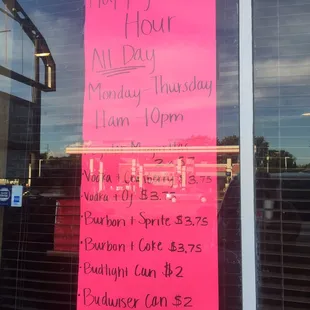 Happy
Hour
All Day
Monday Thursday
11am 10pm
Vodka + Cranberry $3.75
Vodka + OJ $3.75
Burbon + Sprite $3.75
Burbon + Coke $3.75
Budlight Can $2
Budwiser Can $2